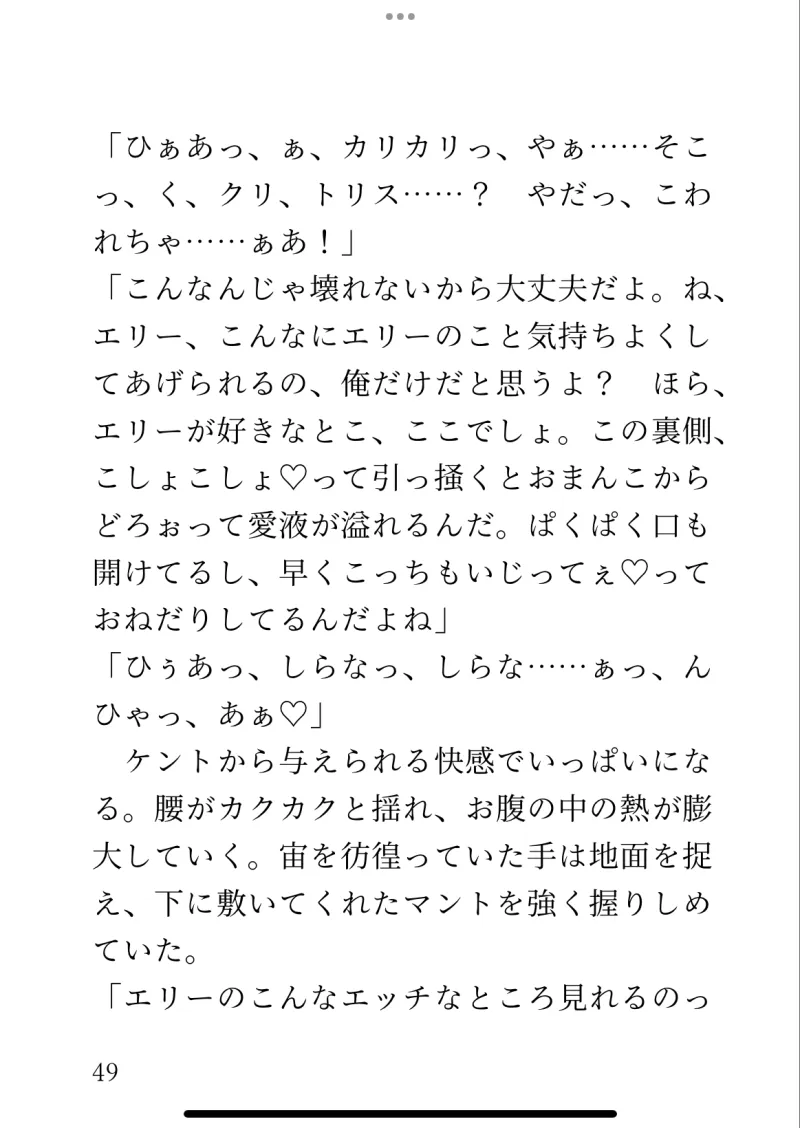 「ひぁあっ、ぁ、カリカリっ、やぁ……そこ
っ、く、クリ、トリス……？　やだっ、こわ
れちゃ……ぁあ！」
「こんなんじゃ壊れないから大丈夫だよ。ね、
エリー、こんなにエリーのこと気持ちよくし
てあげられるの、俺だけだと思うよ？　ほら、
エリーが好きなとこ、ここでしょ。この裏側、
こしょこしょ♡って引っ掻くとおまんこから
どろぉって愛液が溢れるんだ。ぱくぱく口も
開けてるし、早くこっちもいじってぇ♡って
おねだりしてるんだよね」
「ひぅあっ、しらなっ、しらな……ぁっ、ん
ひゃっ、あぁ♡」
　ケントから与えられる快感でいっぱいにな
る。腰がカクカクと揺れ、お腹の中の熱が膨
大していく。宙を彷徨っていた手は地面を捉
え、下に敷いてくれたマントを強く握りしめ
ていた。
「エリーのこんなエッチなところ見れるのっ
49